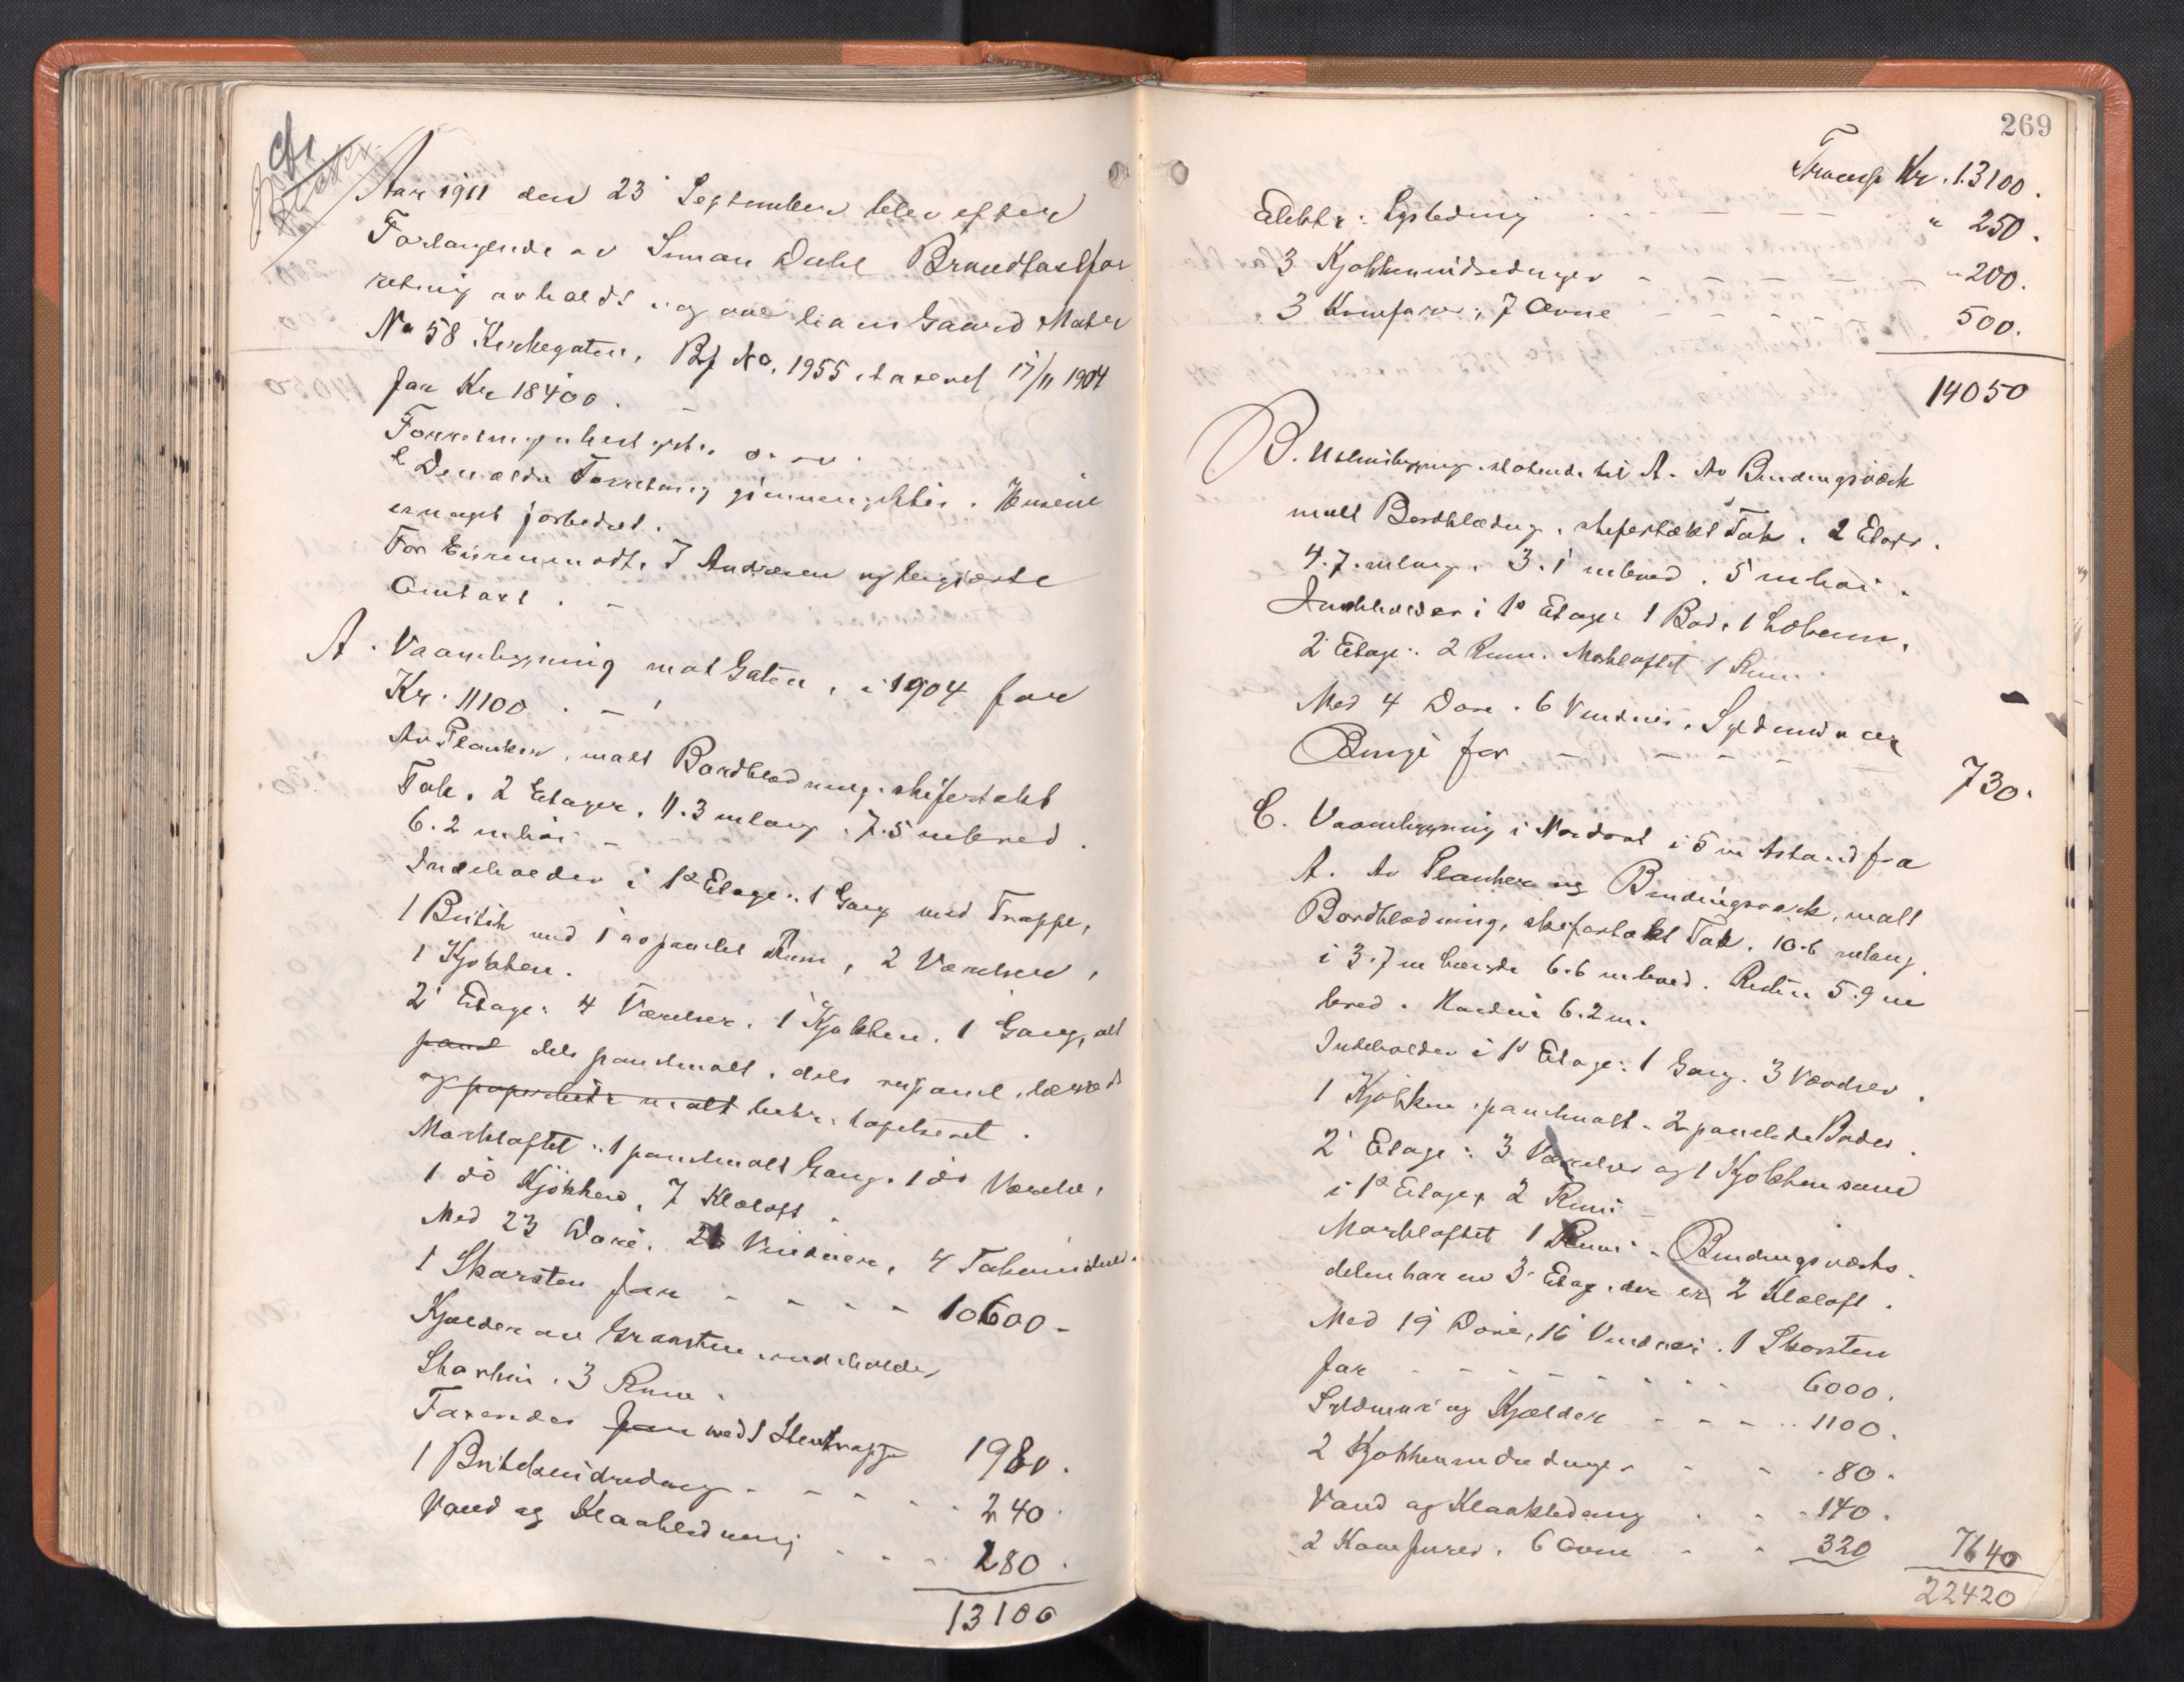 Aar 1911 den 23' September blev efter
Forlangende av Simon Dahl Brandtaxtfor
retning avholdt og over hans Gaard Matr
No 58 Kirkegaten, Bf No. 1955, taxeret 17/11 1904
for Kr 18400. -
o. sv.
Den ældre Forretning gjennemgikkes. Husene
er noget forbedret.
For Eieren mødte J Andresen og begjærte
Omtaxt. -
A. Vaaningsbygning mot Gaten, i 1904 for
Kr. 11100. -
Av Planker, malt Bordklædning, skifertækt
Tak. 2 Etager. 11.3 m lang. 7.5 m bred.
6.2 m høi -
Indeholder i 1ste Etage: 1 Gang med Trappe,
1 Butik med 1 Rum, 2 Værelser,
1 Kjøkken.
2' Etage: 4 Værelser. 1 Kjøkken. 1 Gang, alt
panel dels panelmalt, dels
og malt betr. tapetseret.
Mørkloftet: 1 panelmalt Gang. 1 do Værelse,
1 do Kjøkken, 7 Klæloft.
Med 23 Døre. Vinduer, 4 Takvinduer
1 Skorsten for - - - - 10600 -
Kjælder av Graasten indeholder
3 Rum.
Taxeres for med 1 Stentrappe 1980.
1 Butikindredning - - - - 240.
Vand og Kloakledning - - - 280.
13100
269
Transp Kr. 13100.
Elektr: Lysledning - - - - " 250.
3 Kjøkkenindredninger - - - - " 200.
3 Komfurer, 7 Ovne - - - - 500.
14050
B. Udhusbygning støtende til A. Av Bindingsværk
malt Bordklædning, skifertækt Tak. 2 Etager.
4.7 m lang. 3.1 m bred. 5 m høi.
Indeholder i 1ste Etage: 1 Bod, 1
2' Etage: 2 Rum. Mørkloftet 1 Rum.
Med 4 Døre. 6 Vinduer. Syldmur
for - - - - - 730.
C. Vaaningsbygning i Nordost i 5 m Avstand fra
A. Av Planker og Bindingsværk, malt
Bordklædning, skifertækt Tak. 10.6 m lang.
i 3.7 m Længde 6.6 m bred. Resten 5.9 m
bred. Høiden 6.2 m.
Indeholder i 1ste Etage: 1 Gang. 3 Værelser.
1 Kjøkken, panelmalt. 2 panelede Boder.
2' Etage: 3 Værelser og 1 Kjøkken som
i 1ste Etage, 2 Rum -
Mørkloftet 1 Rum. Bindingsværks-
delen har en 3' Etage, der er 2 Klæloft.
Med 19 Døre, 16 Vinduer. 1 Skorsten
for - - - - - - - 6000.
Syldmur og Kjælder - - - - 1100.
2 Kjøkkenindredninger - - 80.
Vand og Kloakledning - - 140.
2 Komfurer. 6 Ovne - - 320 7640
22420